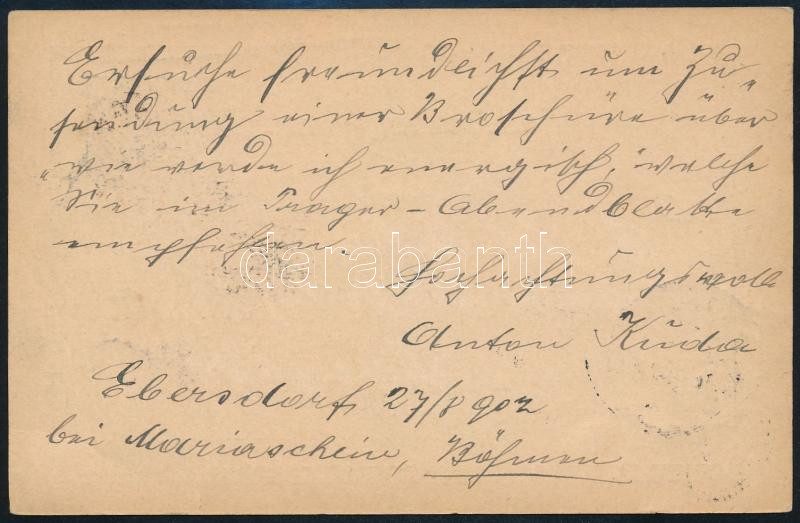 Ersuche freundlichst um Zu"
sendung einer Broschüre über
„wie werde ich energisch," welche
Sie im Prager - Abendblatte
empfohlen.
Hochachtungsvoll
Anton Kuda
Ebersdorf 27/8 902
bei Mariaschein, Böhmen
darabanth.com